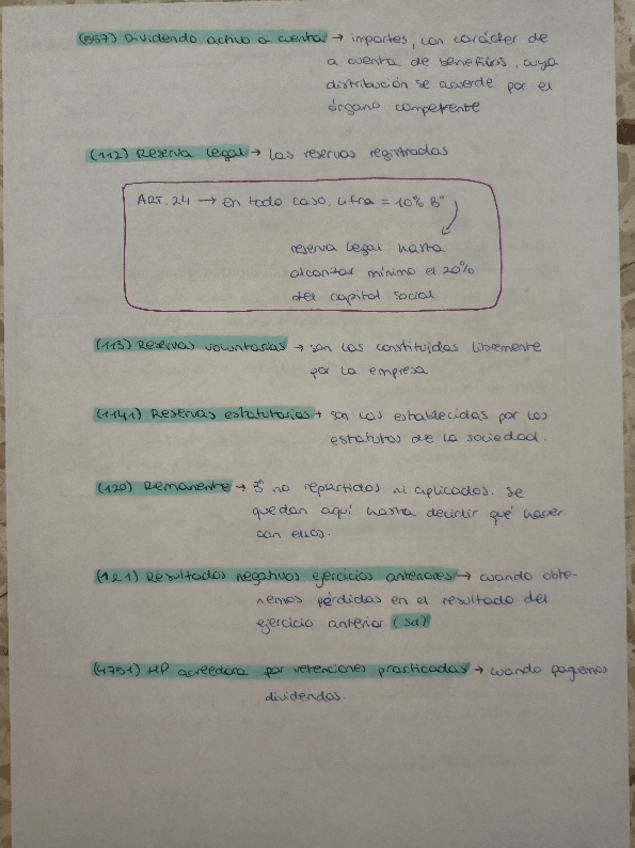 (557) Dividendo activo a cuenta → importes, con carácter de
a cuenta de beneficios, cuya
distribución se acuerde por el
órgano competente
(112) Reserva legal → las reservas registradas
ART. 24 → En todo caso, cifra = 10% Bº
reserva legal hasta
alcanzar mínimo el 20%
del capital social
(113) Reservas voluntarias → son las constituidas libremente
por la empresa
(1141) Reservas estatutarias → son las establecidas por los
estatutos de la sociedad.
(120) Remanente → Bº no repartidos ni aplicados. Se
quedan aquí hasta decidir qué hacer
con ellos.
(121) Resultados negativos ejercicios anteriores → cuando obte-
nemos pérdidas en el resultado del
ejercicio anterior (Sd)
(4751) HP acreedora por retenciones practicadas → cuando pagamos
dividendos.